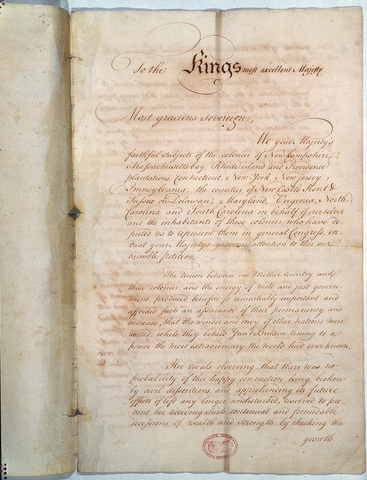 To the Kings most excellent Majesty
Most gracious Sovereign,
We your Majesty's
faithful subjects of the colonies of New Hampshire,
Massachusetts bay, Rhode island and Providence
plantations, Connecticut, New York, New Jersey,
Pennsylvania, the counties of New Castle Kent &
Sussex on Delaware, Maryland, Virginia, North
Carolina and South Carolina in behalf of ourselves
and the inhabitants of these colonies, who have de
puted us to represent them in general Congress, en
treat your Majestys gracious attention to this our
humble petition.
The union between our Mother Country and
these colonies, and the energy of mild and just govern
ment, produced benefits so remarkably important and
afforded such an assurance of their permanency and
increase, that the wonder and envy of other nations were
excited, while they beheld Great Britain riseing to a
power the most extraordinary the world had ever known.
Her rivals observing, that there was no
probability of this happy connection being broken
by civil dissentions, and apprehending its future
effects if left any longer undisturbed, resolved to pre
vent her receiving such continual and formidable
accessions of wealth and strength, by checking the
growth